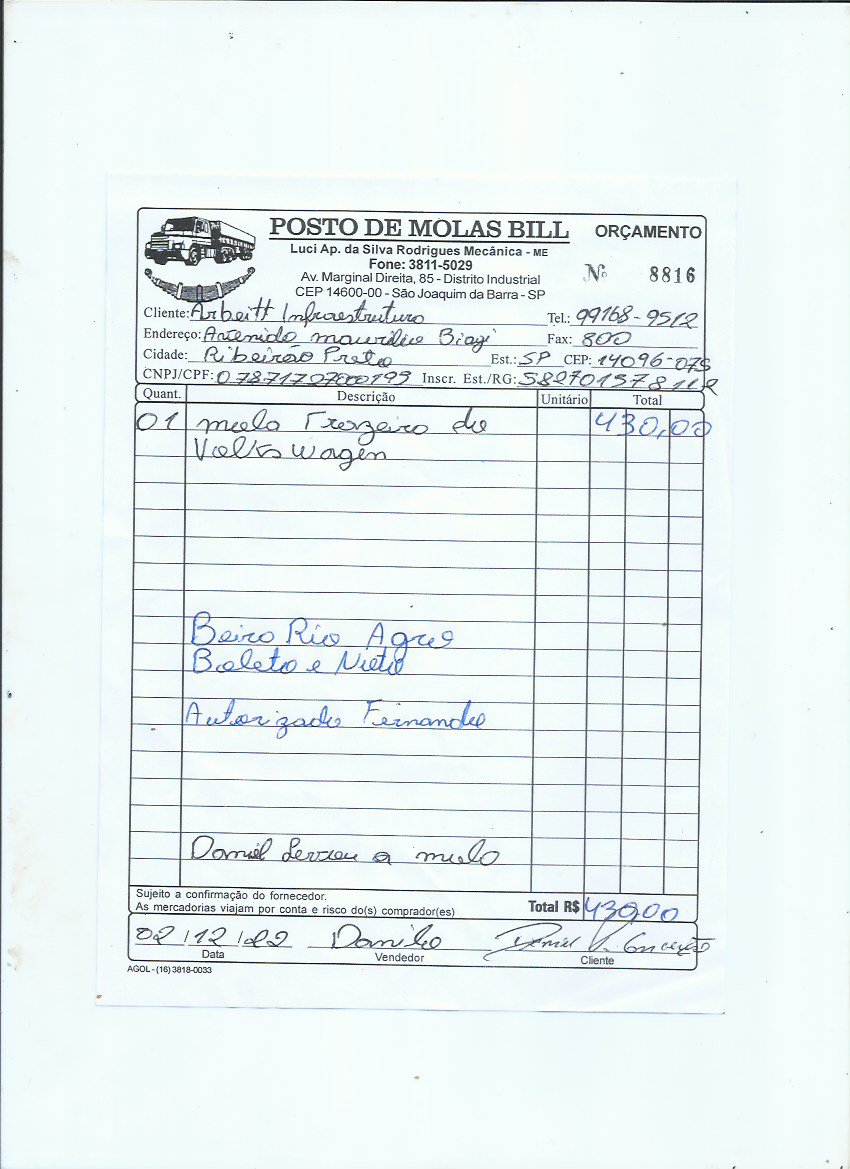 POSTO DE MOLAS BILL
ORÇAMENTO
Luci Ap. da Silva Rodrigues Mecânica - ME
Fone: 3811-5029
Av. Marginal Direita, 85 - Distrito Industrial
CEP 14600-00 - São Joaquim da Barra - SP
Nº 8816
Cliente: Arbeitt Infraestrutura Tel.: 99168-9512
Endereço: Avenida maurilio Biagi Fax: 800
Cidade: Ribeirão Preto Est.: SP CEP: 14096-075
CNPJ/CPF: 07871707000195 Inscr. Est./RG:
Quant. Descrição Unitário Total
01 mola Trazeira de 430,00
Volks Wagen
Beira Rio Agro
Boleto e Nieto
Autorizado Fernando
Daniel Levou a mola
Sujeito a confirmação do fornecedor.
As mercadorias viajam por conta e risco do(s) comprador(es)
Total R$ 430,00
02/12/22 Danilo Daniel Conceição
Data Vendedor Cliente
AGOL - (16) 3818-0033